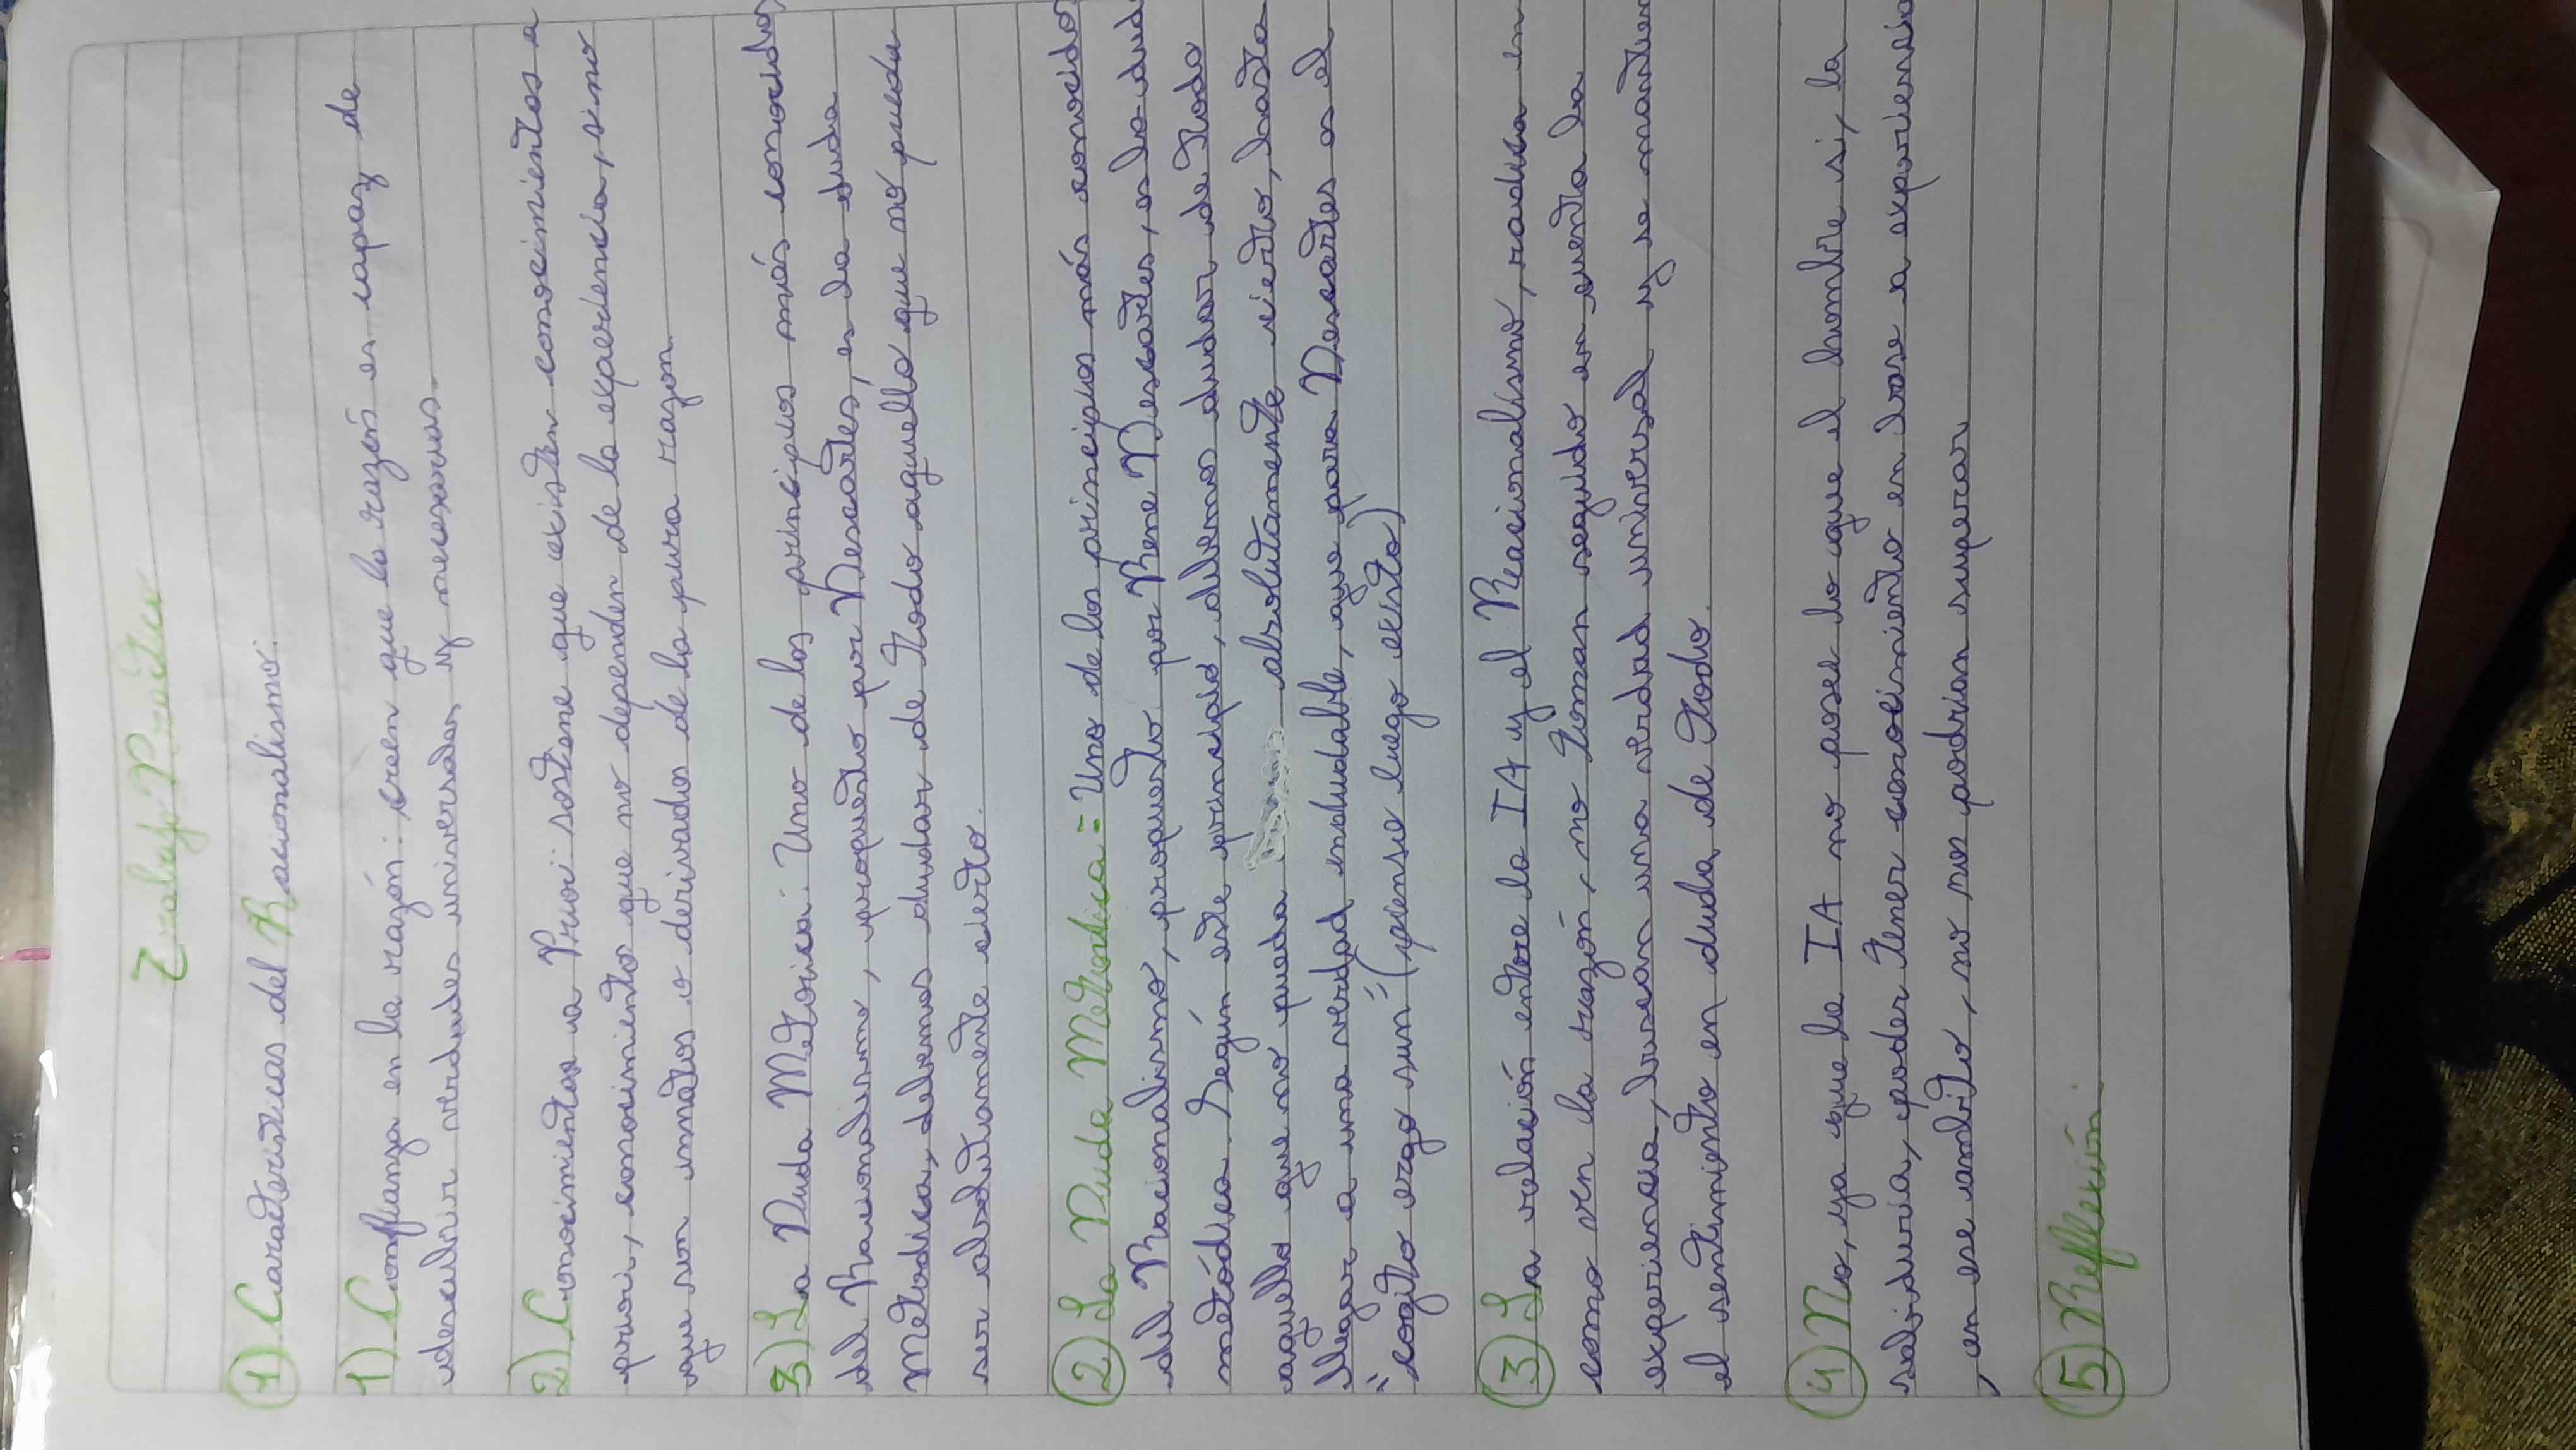 Trabajo Práctico
1) Caracteristicas del Racionalismo:
1) Confianza en la razón: creen que la razón es capaz de
descubrir verdades universales y necesarias.
2) Conocimientos a Priori sostiene que existen conocimientos a
priori, conocimientos que no dependen de la experiencia, sino
que son innatos o derivados de la pura razon.
3) La Duda Metorica: Uno de los principios más conocidos
del Racionalismo, propuesto por Descartes, es la duda
Metodica, debemos dudar de todo aquello que no pueda
ser absolutamente cierto.
2) La Duda Metodica = Uno de los principios más conocido
del Racionalismo, propuesto por Rene Descartes, es la dud
metódica. Según este principio, debemos dudar de todo
aquello que no pueda absolutamente cierto, hasta
llegar a una verdad indudable, que para Descartes es el
"cogito ergo sun" (pienso luego existo)
3) La relación entre la IA y el Reacionalismo, radica en
como ven la razón, no toman seguido en cuenta la
experiencia, buscan una verdad universal y se mantien
el sentimiento en duda de todo.
4) No, ya que la IA no posee lo que el hombre si, la
sabiduria, poder tener conocimiento en base a experiencia
, en ese ambito, no nos podrian superar
5) Reflexión: